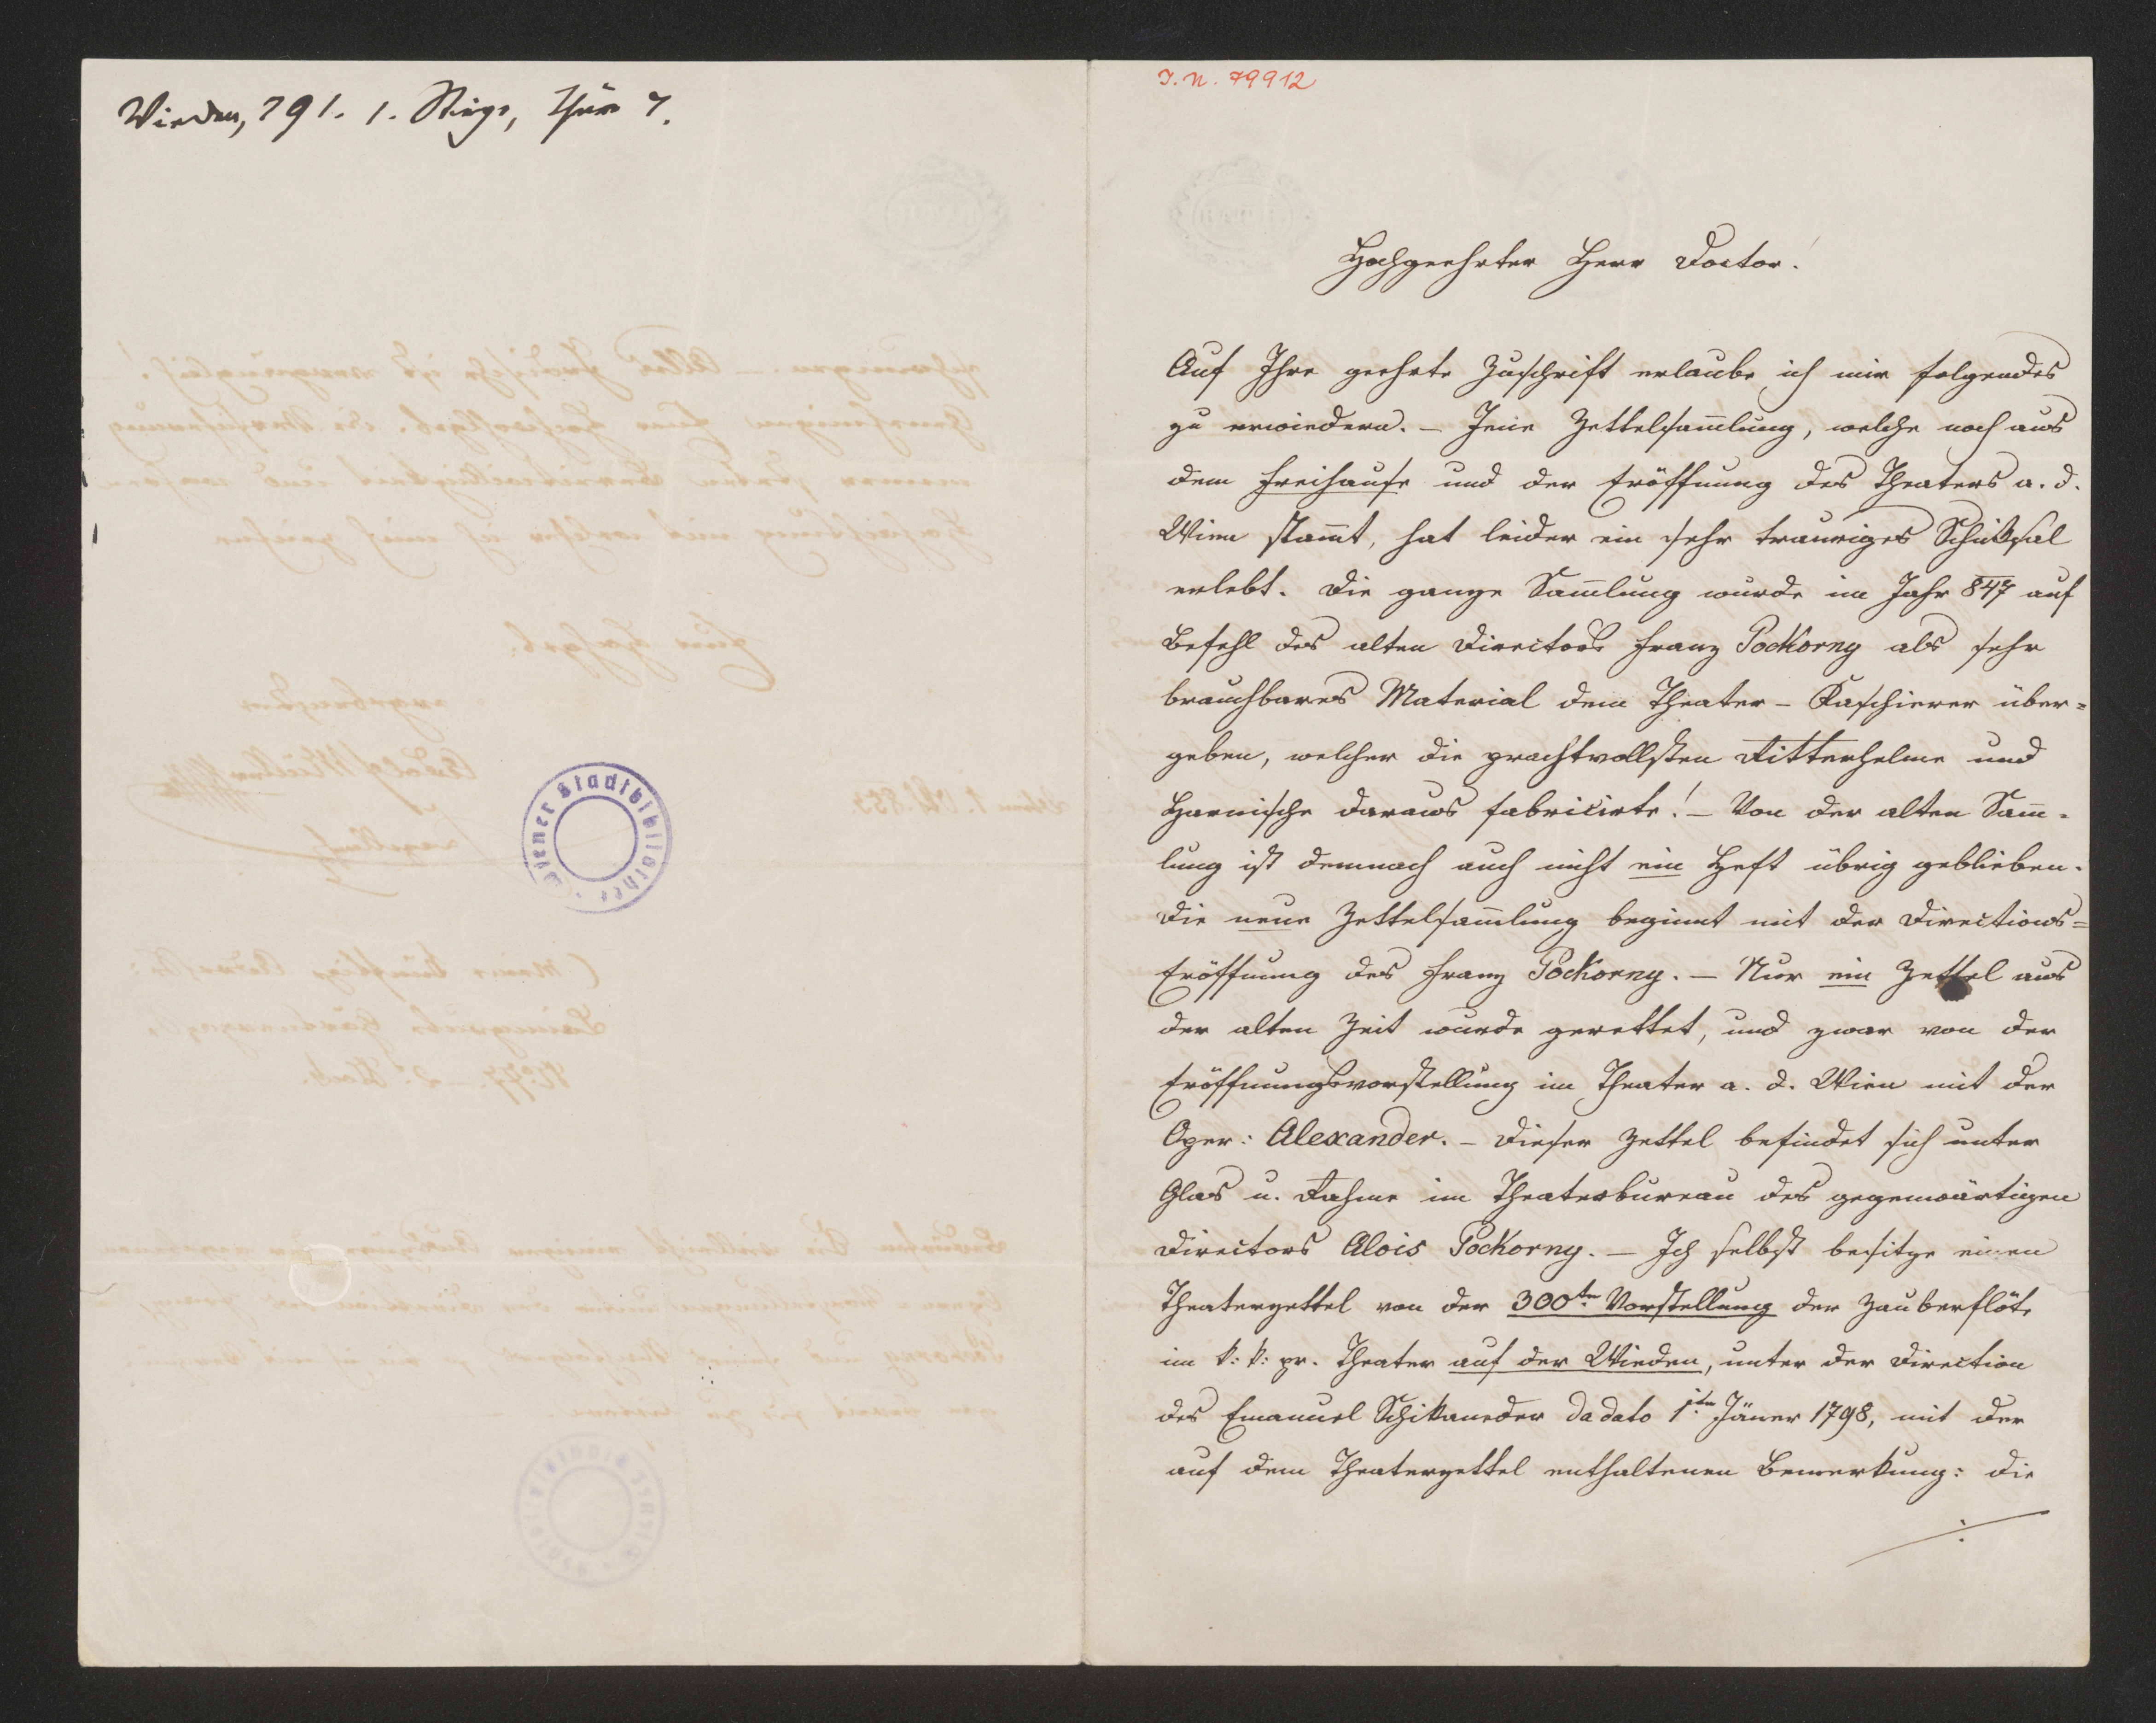 Wieden, 791. 1. Stiege, Thür 7.
Wiener Stadtbibliothek
I. N. 79912
Hochgeehrter Herr Doctor!
Auf Ihre geehrte Zuschrift erlaube ich mir folgendes
zu erwiedern. – Jene Zettelsam̅lung, welche noch aus
dem Freihause und der Eröffnung des Theaters a. d.
Wien stam̅t, hat leider ein sehr trauriges Schiksal
erlebt. Die ganze Sam̅lung wurde im Jahr 847 auf
Befehl des alten Directors Franz Pockorny als sehr
brauchbares Material dem Theater – Kaschierer über=
geben, welcher die prachtvollsten Ritterhelme und
Harnische daraus fabricirte! – Von der alten Sam̅=
lung ist demnach auch nicht ein Heft übrig geblieben.
Die neue Zettelsam̅lung beginnt mit der Directions=
Eröffnung des Franz Pockorny. – Nur ein Zettel aus
der alten Zeit wurde gerettet, und zwar von der
Eröffnungsvorstellung im Theater a. d. Wien mit der
Oper: Alexander. – Dieser Zettel befindet sich unter
Glas u. Rahme im Theaterbureau des gegenwärtigen
Directors Alois Pockorny. – Ich selbst besitze einen
Theaterzettel von der 300ten Vorstellung der Zauberflöte
im k: k: pr. Theater auf der Wieden, unter der Direction
des Emanuel Schikaneder da dato 1ten Jäner 1798, mit der
auf dem Theaterzettel enthaltenen Bemerkung: die
./.